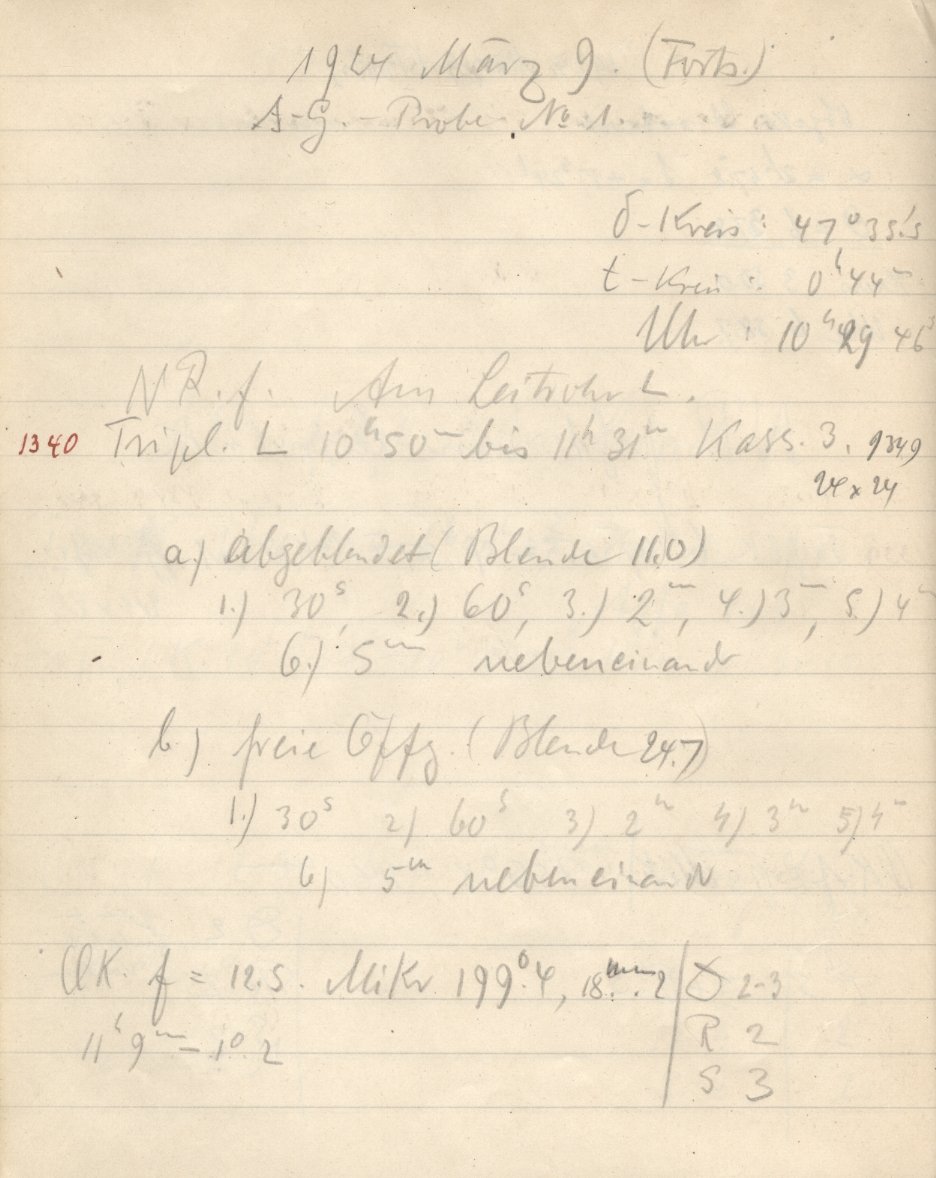 1924 März 9. (Forts.)
A-G.-Probe No 1.
δ-Kreis: 47° 35.'5
t-Kreis: 0ʰ 44ᵐ
Uhr: 10ʰ 29 46ˢ
N R. f. Am Leitrohr L.
1340 Tripl. L 10ʰ50ᵐ bis 11ʰ 31ᵐ Kass. 3. 9349
24 x 24
a.) abgeblendet (Blende 11.0)
1.) 30ˢ, 2.) 60ˢ, 3.) 2ᵐ, 4.) 3ᵐ, 5.) 4ᵐ
6.) 5ᵐ nebeneinand
b.) freie Öffg. (Blende 24.7)
1.) 30ˢ 2) 60ˢ 3) 2ᵐ 4) 3ᵐ 5) 4ᵐ
6) 5ᵐ nebeneinand
OK. f = 12.5. Mikr. 199°.4, 18ᵐᵐ.2 2-3
11ʰ 9ᵐ - 1°.2 R 2
S 3